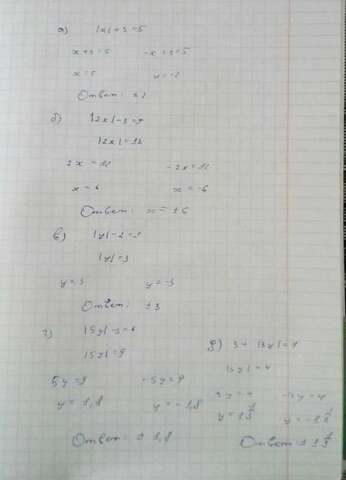 а) |x| + 3 = 5
x + 3 = 5 -x + 3 = 5
Ответ: ± 2
б) |2x| - 3 = 9
|2x| = 12
2x = 12 -2x = 12
x = 6 x = -6
Ответ: x = ± 6
в) |y| - 2 = 1
|y| = 3
y = 3 y = -3
Ответ: ± 3
г) |5y| - 3 = 6
|5y| = 9
5y = 9 -5y = 9
y = 1,8 y = -1,8
Ответ: ± 1,8
|3y| = 4
3y = 4 -3y = 4
Ответ